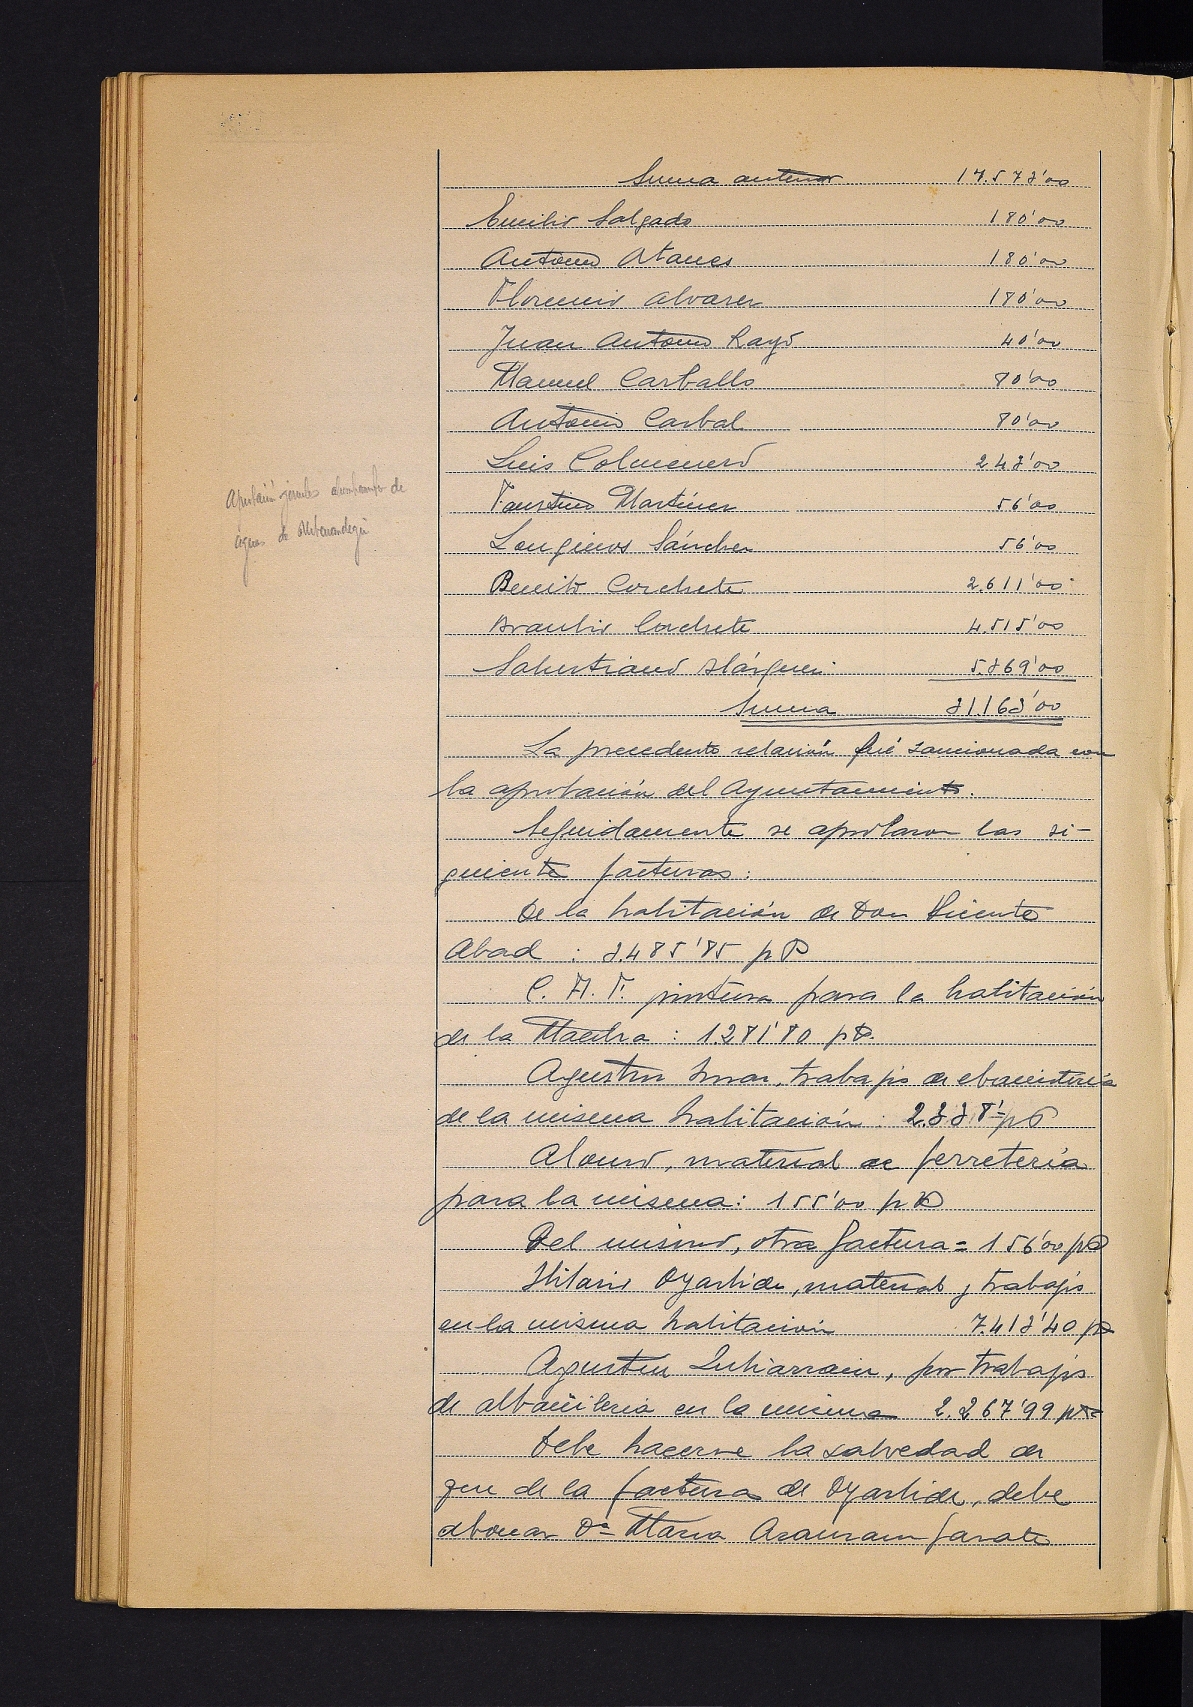 Suma anterior 17.573'00
Emilio Salgado 180'00
Antonio Atanes 180'00
Florencio Alvarez 180'00
Juan Antonio Rayo 40'00
Manuel Carballo 80'00
Antonio Carbal 80'00
Luis Colmenero 243'00
Faustino Martínez 56'00
Longinos Sánchez 56'00
Benito Corchete 2.611'00
Braulio Corchete 4.515'00
Salustiano Márquez 5.369'00
Suma 31.163'00
La precedente relación fué sancionada con
la aprobación del Ayuntamiento.
Seguidamente se aprobaron las si-
guiente facturas:
De la habitación de Don Vicente
Abad : 3.485'85 pts
C.A.F. pintura para la habitación
de la Maestra : 1.281'80 pts.
Agustin trabajos de ebanisteria
de la misma habitación : 2.338'= pts
Alonso, material de ferretería
para la misma : 155'00 pts
Del mismo, otra factura = 156'00 pts
Hilario Oyarbide, material y trabajos
en la misma habitación 7.413'40 pts
Agustin Lubiarrain, por trabajos
de albañileria en la misma 2.267'99 pts
Debe hacerse la salvedad de
que de la factura de Oyarbide, debe
abonar Dª Maria Garate
Aprobación jornales de
aguas de